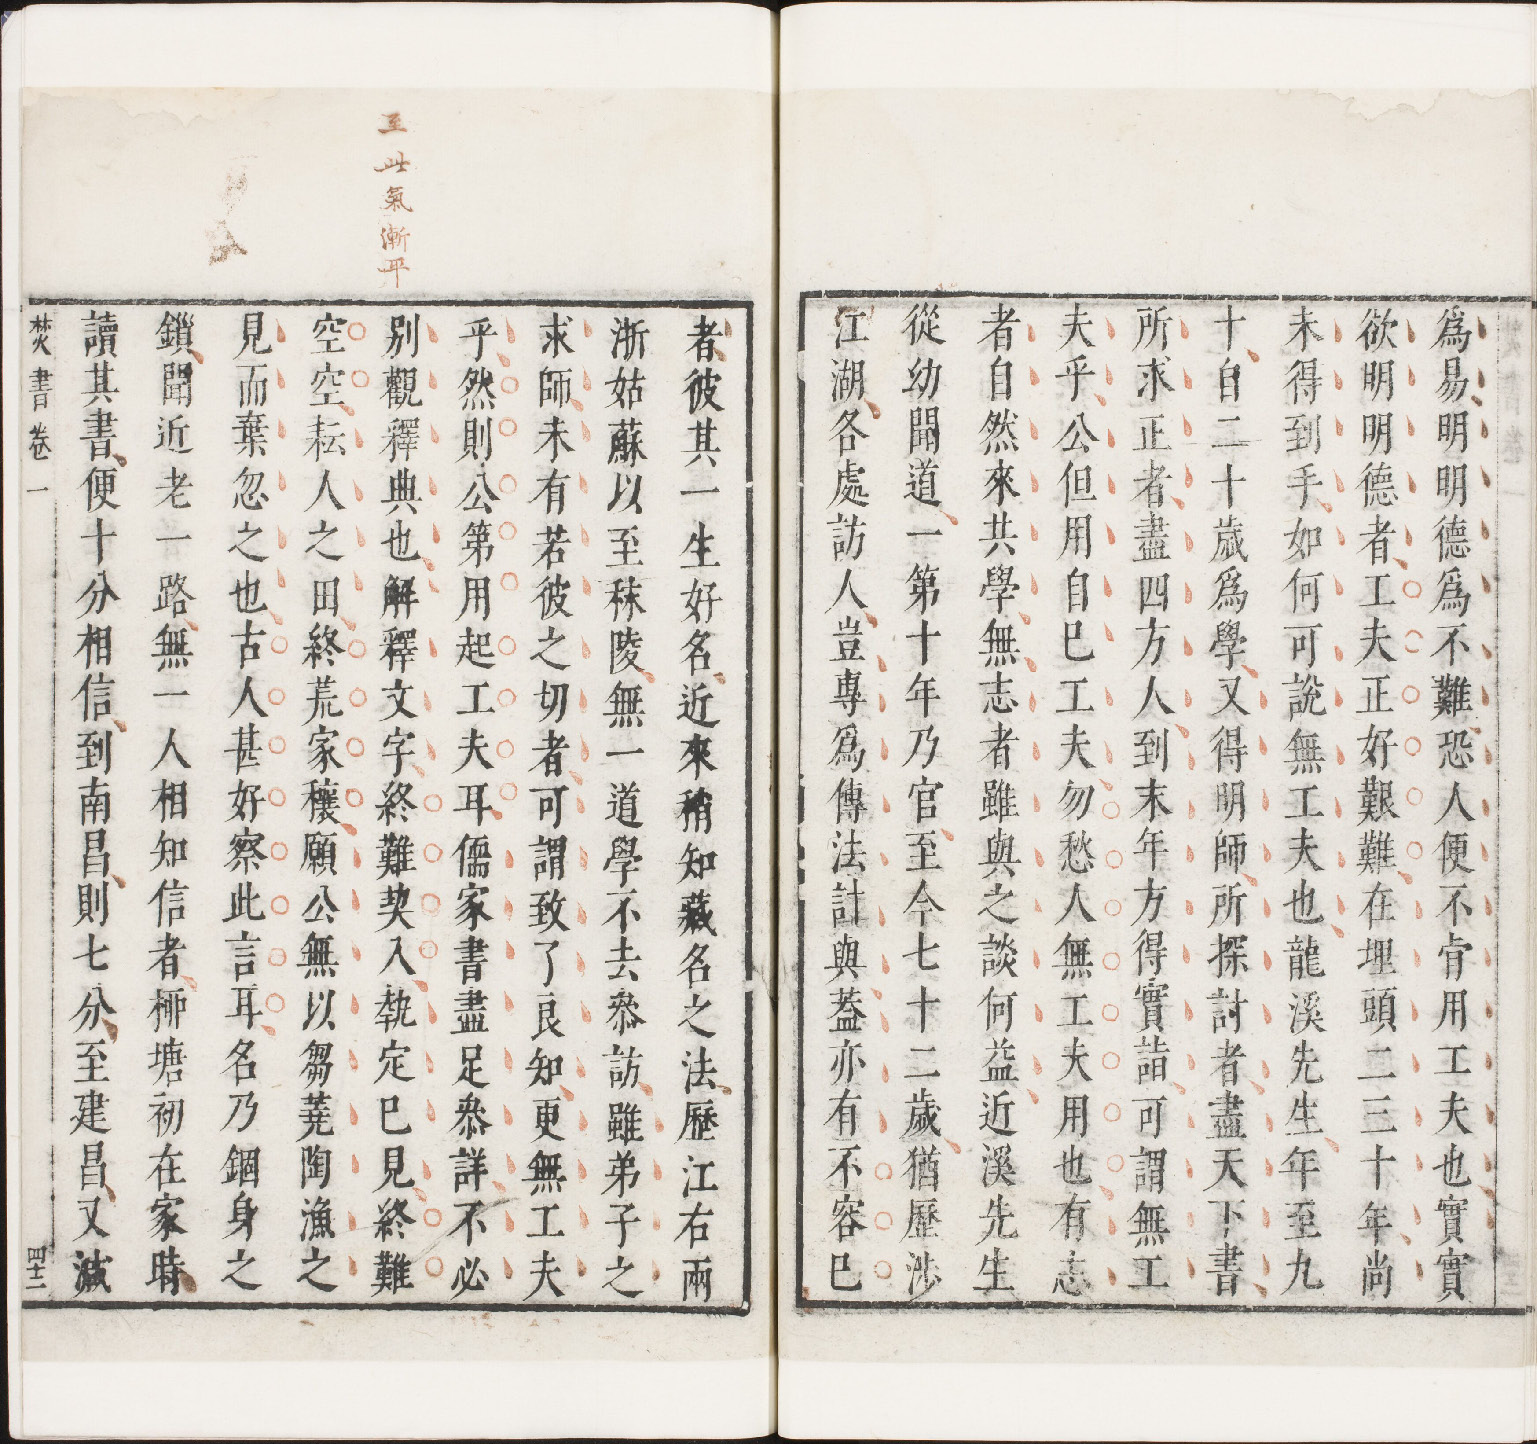 爲易明明德爲不難恐人便不肯用工夫也實實
欲明明德者工夫正好艱難在埋頭二三十年尚
未得到手如何可說無工夫也龍溪先生年至九
十自二十歲爲學又得明師所探討者盡天下書
所求正者盡四方人到末年方得實詣可謂無工
夫乎公但用自己工夫勿愁人無工夫用也有志
者自然來共學無志者雖與之談何益近溪先生
從幼聞道一第十年乃官至今七十二歲猶歷涉
江湖各處訪人豈專爲傳法計與蓋亦有不容已
至此氣漸平
者彼其一生好名近來稍知藏名之法歷江右兩
浙姑蘇以至秣陵無一道學不去叅訪雖弟子之
求師未有若彼之切者可謂致了良知更無工夫
乎然則公第用起工夫耳儒家書盡足叅詳不必
別觀釋典也解釋文字終難契入執定己見終難
空空耘人之田終荒家穰願公無以芻蕘陶漁之
見而棄忽之也古人甚好察此言耳名乃錮身之
鎖聞近老一路無一人相知信者柳塘初在家時
讀其書便十分相信到南昌則七分至建昌又減
焚書 卷一
四十二